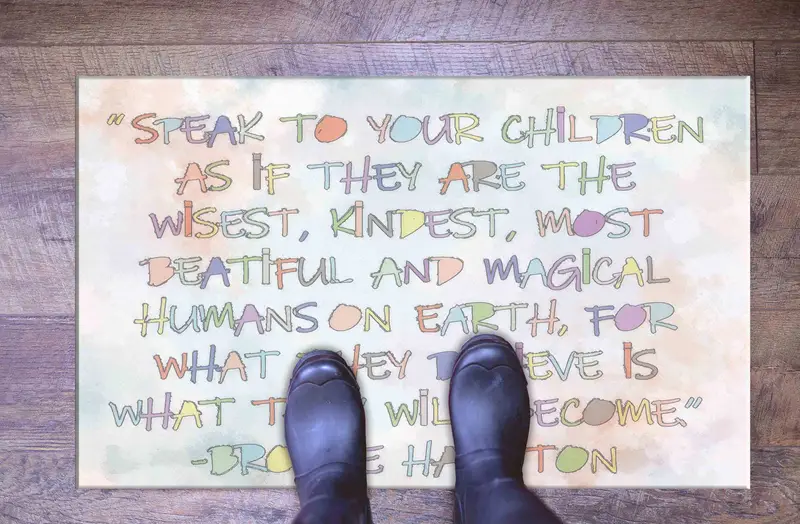 "SPEAK TO YOUR CHILDREN
AS IF THEY ARE THE
WISEST, KINDEST, MOST
BEATIFUL AND MAGICAL
HUMANS ON EARTH, FOR
WHAT THEY BELIEVE IS
WHAT THEY WILL BECOME."